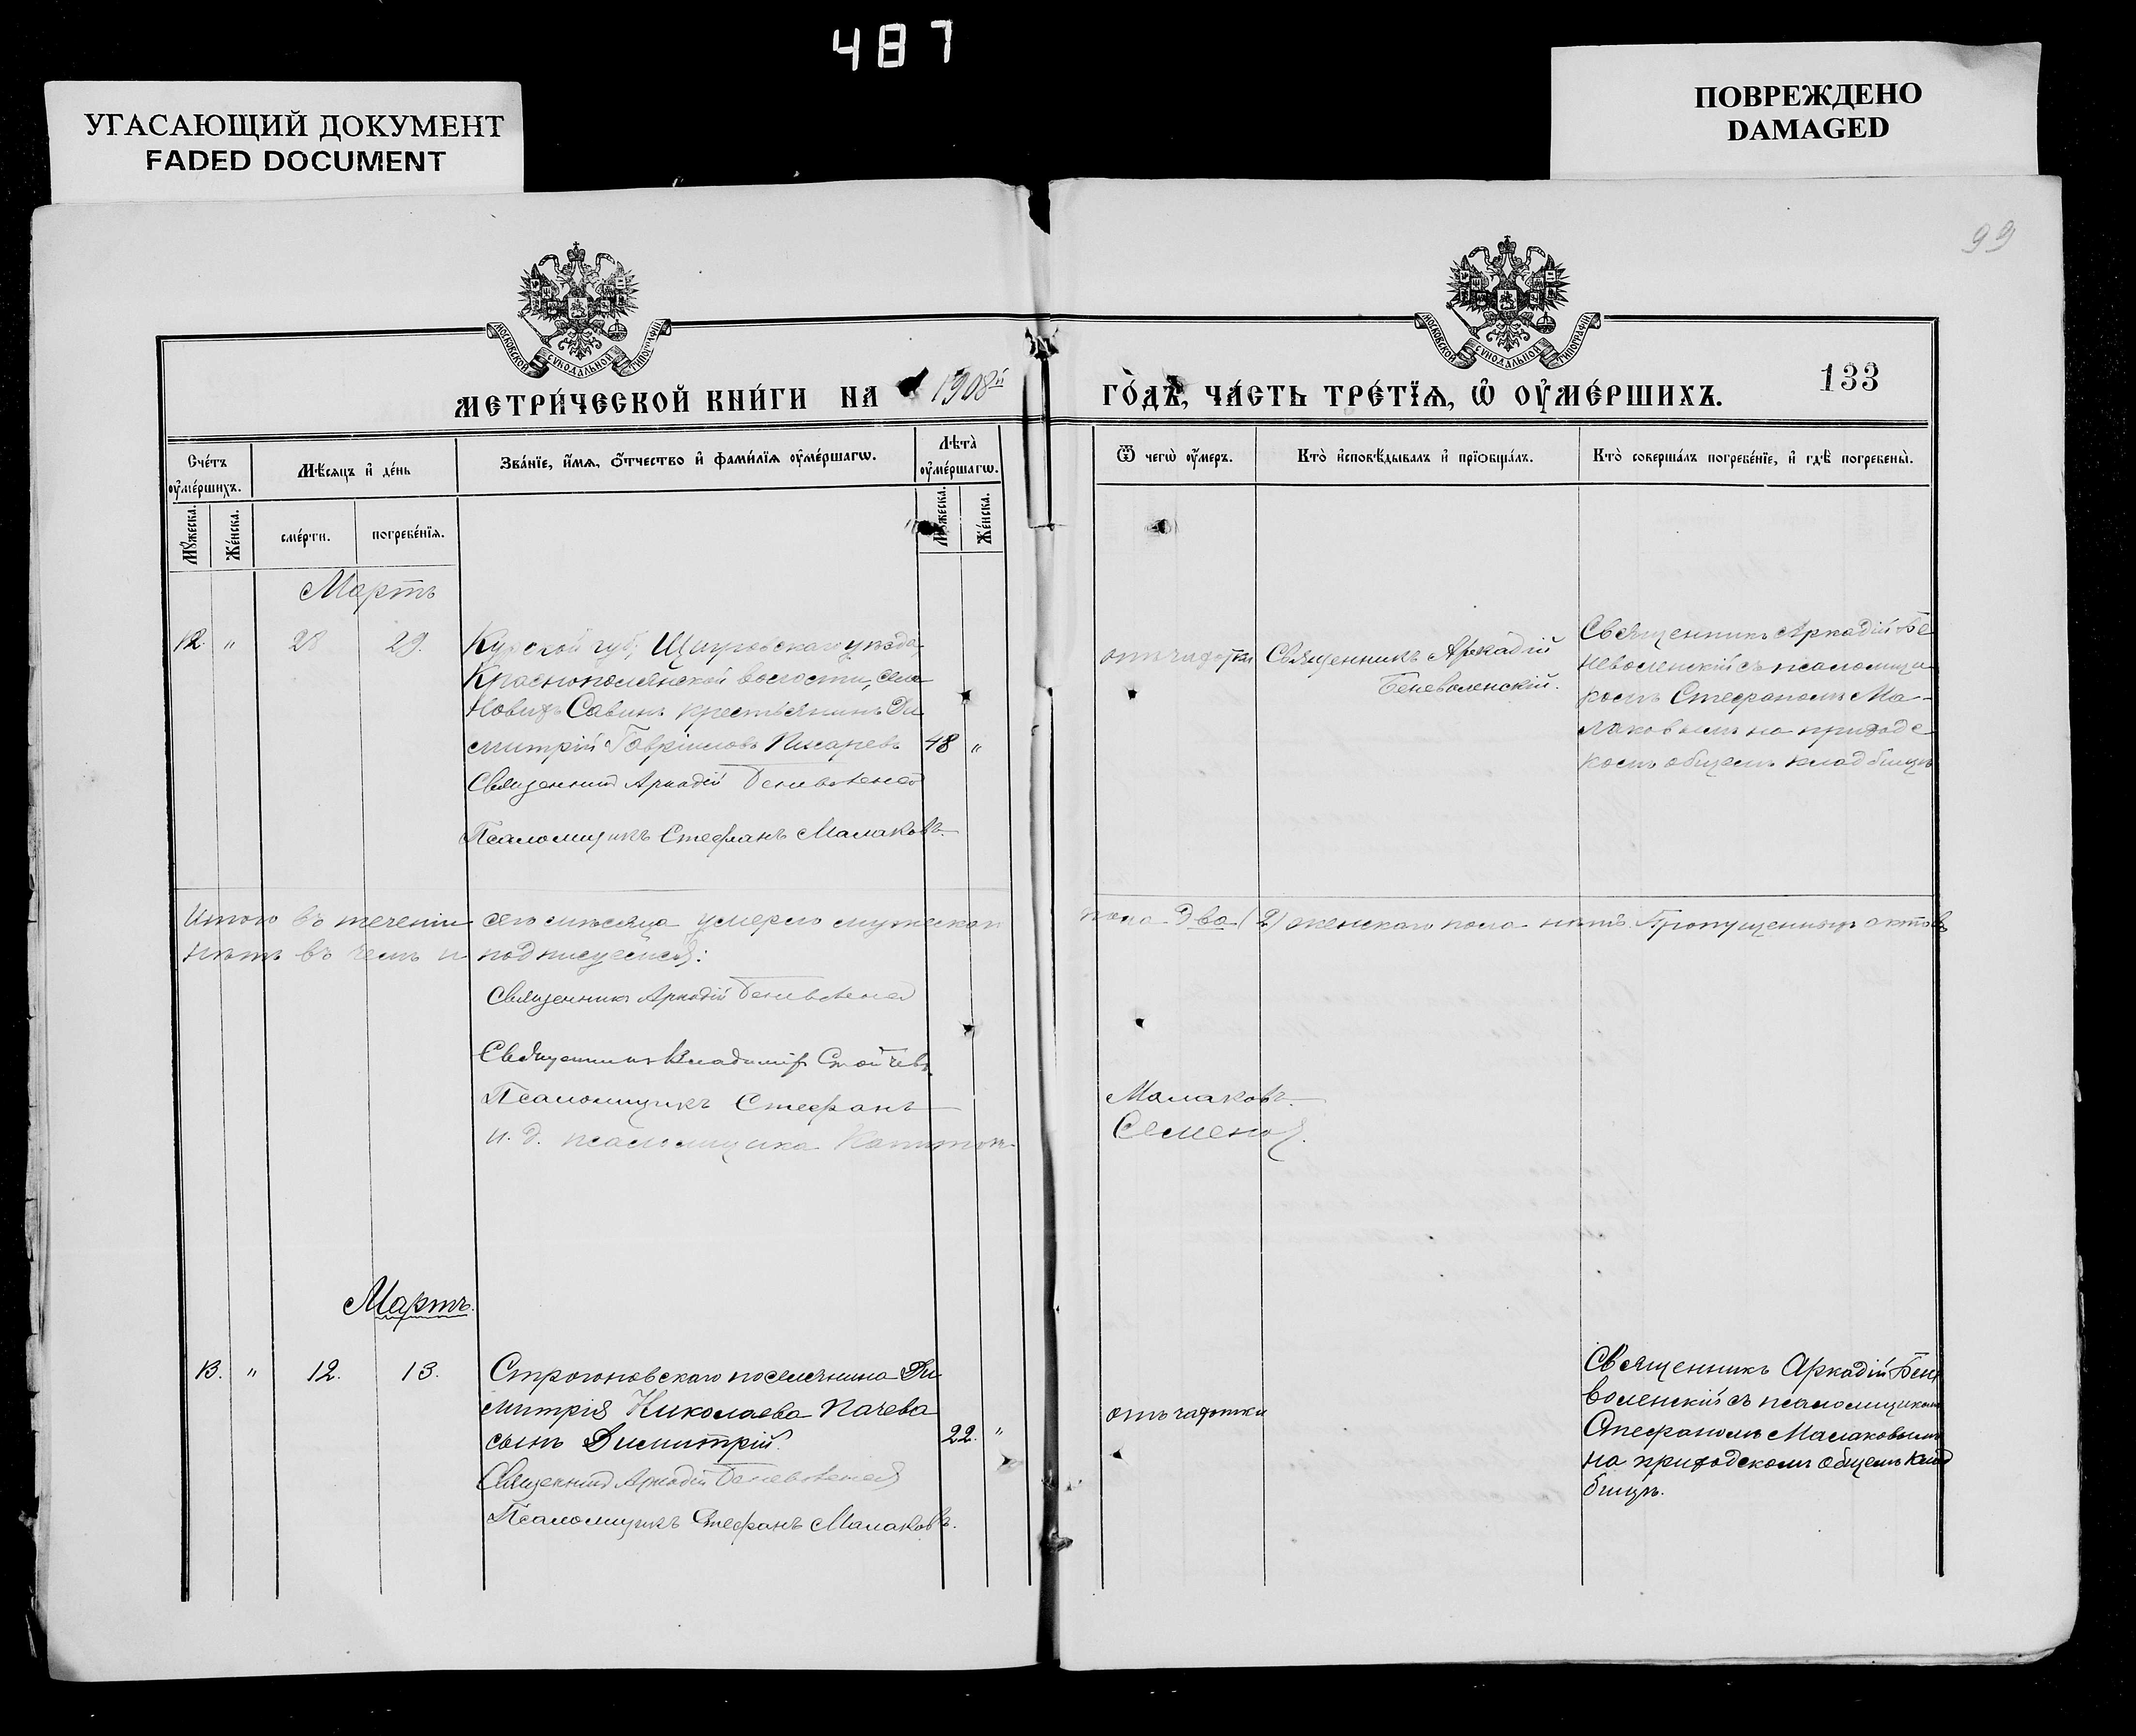 487
УГАСАЮЩИЙ ДОКУМЕНТ
FADED DOCUMENT
ПОВРЕЖДЕНО
DAMAGED
99
МОСКОВСКОЙ СѴНОДАЛЬНОЙ ТИПОГРАФІИ
МОСКОВСКОЙ СѴНОДАЛЬНОЙ ТИПОГРАФІИ
МЕТРИ́ЧЕСКОЙ КНИ́ГИ НА 1908й
ГО́ДЪ, ЧА́СТЬ ТРЕ́ТЇѦ, Ѡ҆ ОУ҆МЕ́РШИХЪ.
133
Сче́тъ оу҆ме́ршихъ.
Мѣ́сяцъ и҆ де́нь
Зва́нїе, и҆́мѧ, ѻ҆́тчество и҆ фами́лїѧ оу҆ме́ршагѡ.
Лѣта̀ оу҆ме́ршагѡ.
Ѿ чегѡ̀ оу҆́меръ.
Кто̀ и҆сповѣ́дывалъ и҆ прїѡбща́лъ.
Кто̀ соверша́лъ погребе́нїе, и҆ гдѣ̀ погребены̀.
Мꙋ́жеска.
Же́нска.
сме́рти.
погребе́нїѧ.
Мꙋ́жеска.
Же́нска.
Мартъ
12. " 28 29. Курской губ, Щигровскаго уѣзда,
Краснополянской волости, села
Новыхъ Савинъ крестьянинъ Ди
митрій Гавріиловъ Писаревъ 48 "
Священникъ Аркадій
Псаломщикъ Стефанъ Малаковъ.
отъ чахотки
Священникъ Аркадій
Беневоленскій.
Священникъ Аркадій Бе
неволенскій съ псаломщи
комъ Стефаномъ Ма-
лаковымъ на приходс
комъ общемъ кладбищѣ
Итого въ теченіи сего мѣсяца умерло мужескаго пола два (2) женскаго пола нѣтъ. Пропущенныхъ актовъ
нѣтъ въ чемъ и подписуемся:
Священникъ Аркадій
Священникъ Владимір Стойчевъ.
Псаломщикъ Стефанъ Малаковъ.
и. д. псаломщика Капитонъ Семеновъ.
Мартъ.
13. " 12. 13. Строгоновскаго поселянина Ди
митрія Николаева Пачева
сынъ Димитрій. 22. "
Священникъ Аркадій
Псаломщикъ Стефанъ Малаковъ.
отъ чахотки
Священникъ Аркадій Бене
воленскій съ псаломщикомъ
Стефаномъ Малаковымъ
на приходскомъ общемъ клад
бищѣ.